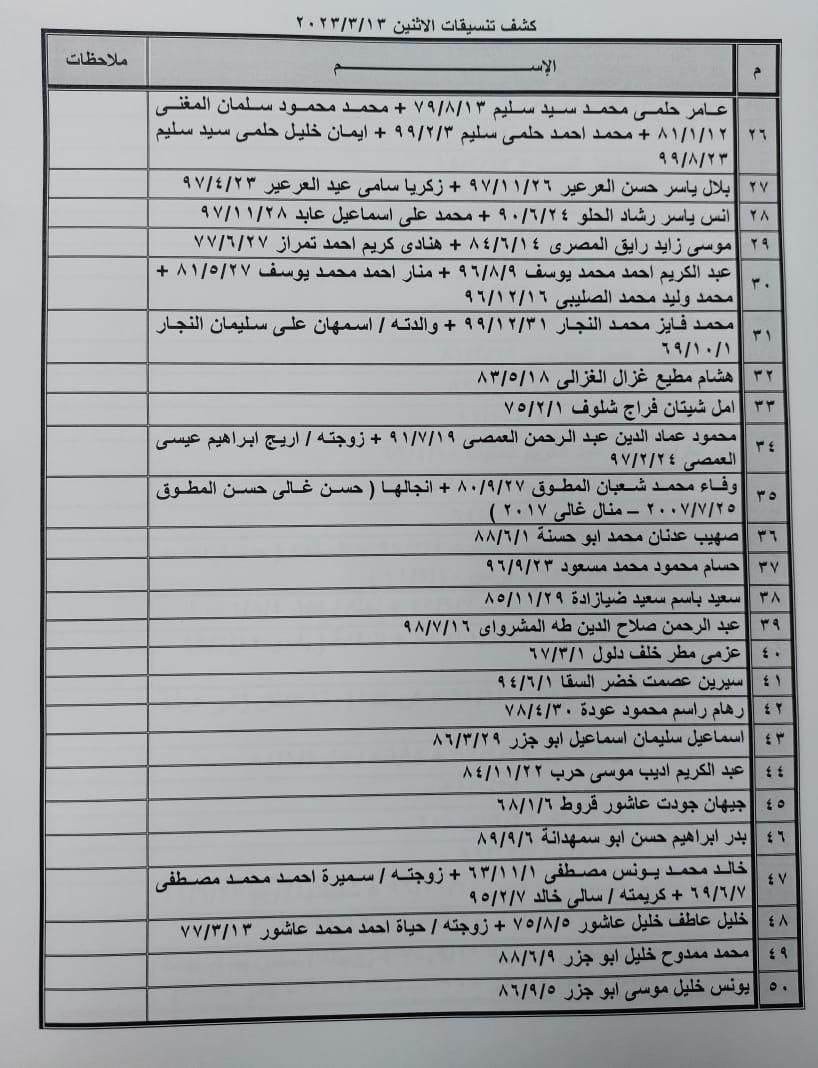 كشف تنسيقات الاثنين ٢٠٢٣/٣/١٣
م الإســـم ملاحظات
٢٦ عامر حلمى محمد سيد سليم ٧٩/٨/١٣ + محمد محمود سلمان المغنى
٨١/١/١٢ + محمد احمد حلمى سليم ٩٩/٢/٣ + ايمان خليل حلمى سيد سليم
٩٩/٨/٢٣
٢٧ بلال ياسر حسن العرعير ٩٧/١١/٢٦ + زكريا سامى عيد العرعير ٩٧/٤/٢٣
٢٨ انس ياسر رشاد الحلو ٩٠/٦/٢٤ + محمد على اسماعيل عابد ٩٧/١١/٢٨
٢٩ موسى زايد رايق المصرى ٨٤/٦/١٤ + هنادى كريم احمد تمراز ٧٧/٦/٢٧
٣٠ عبد الكريم احمد محمد يوسف ٩٦/٨/٩ + منار احمد محمد يوسف ٨١/٥/٢٧ +
محمد وليد محمد الصليبى ٩٦/١٢/١٦
٣١ محمد فايز محمد النجار ٩٩/١٢/٣١ + والدته / اسمهان على سليمان النجار
٦٩/١٠/١
٣٢ هشام مطيع غزال الغزالى ٨٣/٥/١٨
٣٣ امل شيتان فراج شلوف ٧٥/٢/١
٣٤ محمود عماد الدين عبد الرحمن العمصى ٩١/٧/١٩ + زوجته / اريج ابراهيم عيسى
العمصى ٩٧/٢/٢٤
٣٥ وفاء محمد شعبان المطوق ٨٠/٩/٢٧ + انجالها ( حسن غالى حسن المطوق
٢٠٠٧/٧/٢٥ – منال غالى ٢٠١٧ )
٣٦ صهيب عدنان محمد ابو حسنة ٨٨/٦/١
٣٧ حسام محمود محمد مسعود ٩٦/٩/٢٣
٣٨ سعيد باسم سعيد ضيازادة ٨٥/١١/٢٩
٣٩ عبد الرحمن صلاح الدين طه المشرواى ٩٨/٧/١٦
٤٠ عزمى مطر خلف دلول ٦٧/٣/١
٤١ سيرين عصمت خضر السقا ٩٤/٦/١
٤٢ رهام راسم محمود عودة ٧٨/٤/٣٠
٤٣ اسماعيل سليمان اسماعيل ابو جزر ٨٦/٣/٢٩
٤٤ عبد الكريم اديب موسى حرب ٨٤/١١/٢٢
٤٥ جيهان جودت عاشور قروط ٦٨/١/٦
٤٦ بدر ابراهيم حسن ابو سمهدانة ٨٩/٩/٦
٤٧ خالد محمد يونس مصطفى ٦٣/١١/١ + زوجته / سميرة احمد محمد مصطفى
٦٩/٦/٧ + كريمته / سالى خالد ٩٥/٢/٧
٤٨ خليل عاطف خليل عاشور ٧٥/٨/٥ + زوجته / حياة احمد محمد عاشور ٧٧/٣/١٣
٤٩ محمد ممدوح خليل ابو جزر ٨٨/٦/٩
٥٠ يونس خليل موسى ابو جزر ٨٦/٩/٥